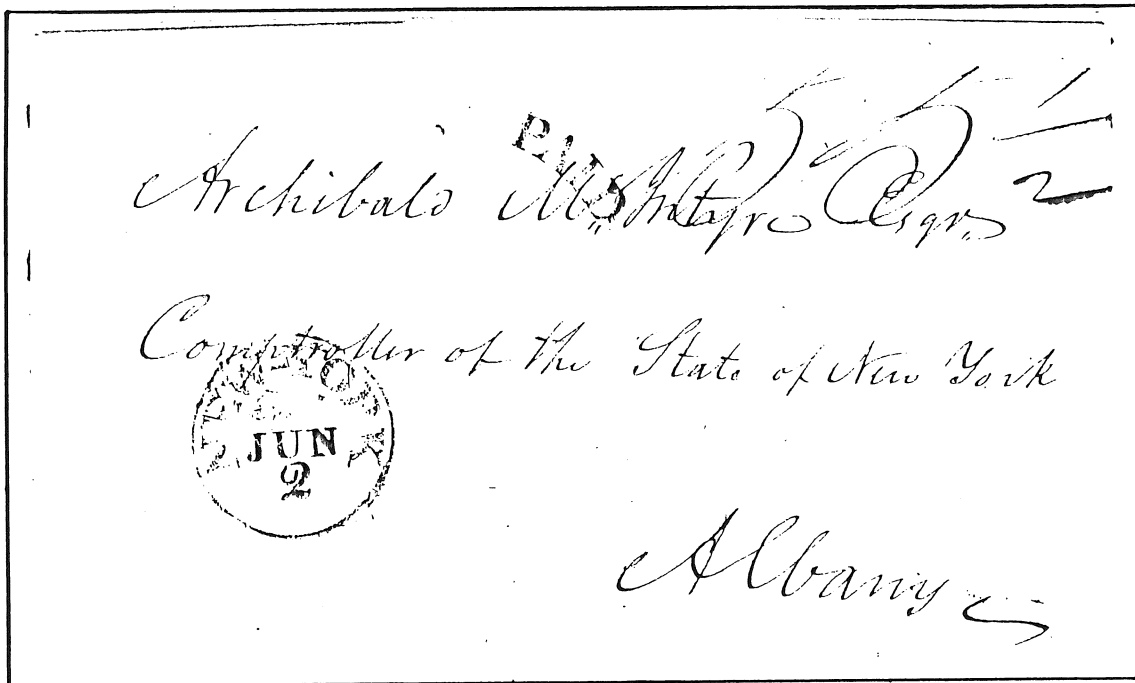 PAID
Archibald McIntyre Esqr.
Comptroller of the State of New York
NEW-YORK
JUN
2
Albany